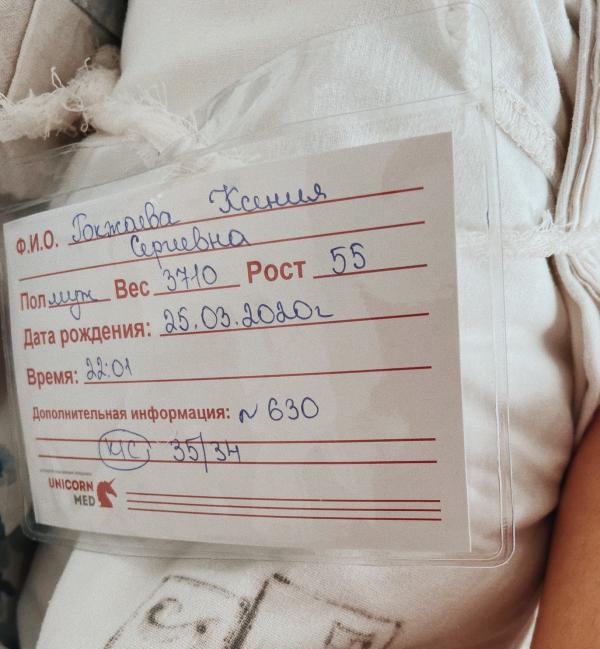 Ф.И.О. Гокжаева Ксения
Сергиевна
Пол муж Вес 3710 Рост 55
Дата рождения: 25.03.2020г
Время: 22:01
Дополнительная информация: № 630
К/С 35/34
UNICORN
MED